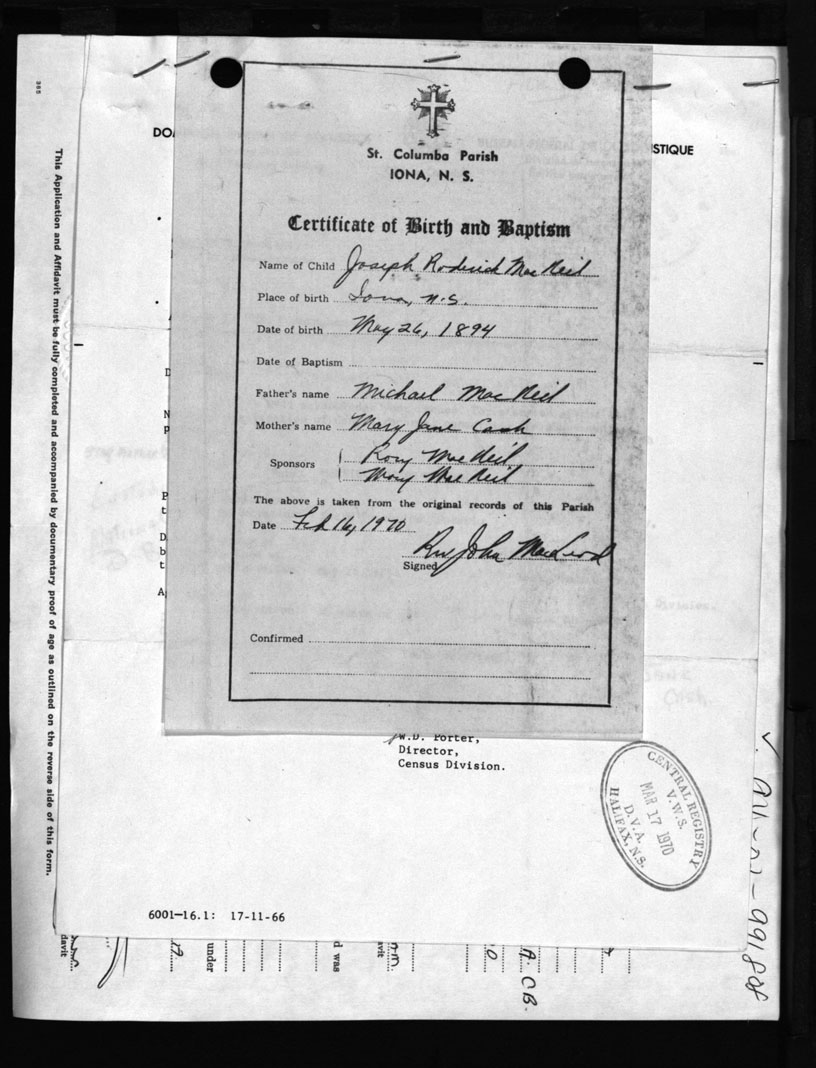 St. Columba Parish
IONA, N. S.
Certificate of Birth and Baptism
Name of Child Joseph Roderick MacNeil
Place of birth Iona, N.S.
Date of birth May 26, 1894
Date of Baptism
Father's name Michael MacNeil
Mother's name Mary Jane Cash
Sponsors Rory MacNeil
Mary MacNeil
The above is taken from the original records of this Parish
Date Feb 16, 1970
Rev John MacLeod
Signed
Confirmed
W.D. Porter,
Director,
Census Division.
CENTRAL REGISTRY
V.W.S.
MAR 17 1970
D.V.A.
HALIFAX, N.S.
6001-16.1: 17-11-66
This Application and Affidavit must be fully completed and accompanied by documentary proof of age as outlined on the reverse side of this form.
365
DO
ISTIQUE
Division.
under
d was
davit
A. CB.